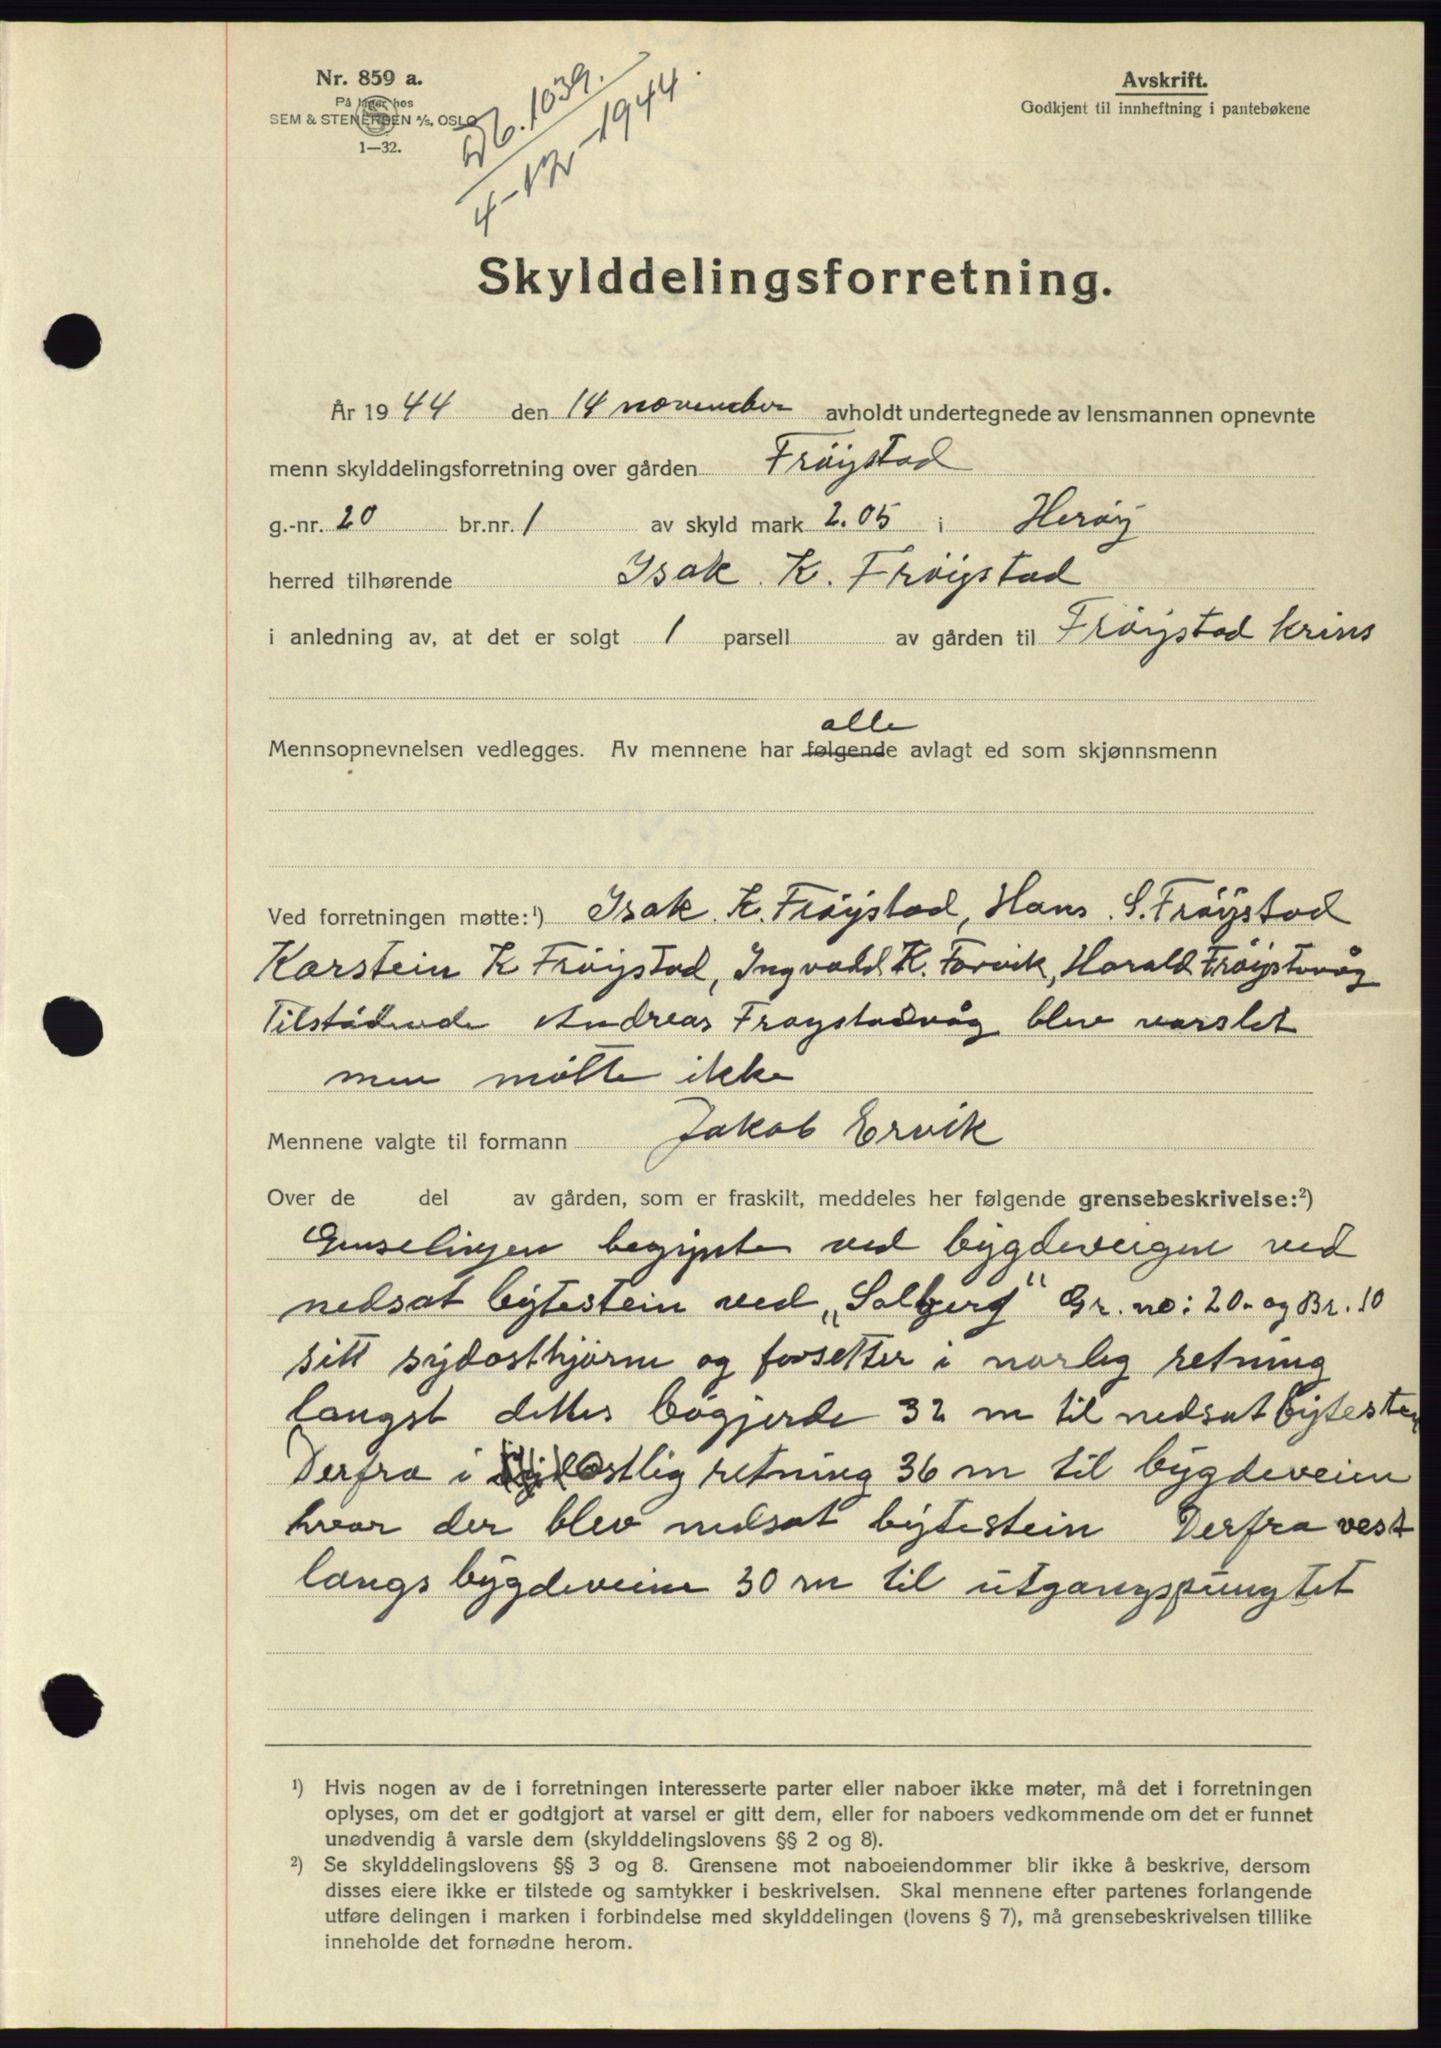 Nr. 859 a.
På lager hos
SEM & STENERSEN A/S, OSLO
1—32.
Db. 1039.
4-12-1944.
Avskrift.
Godkjent til innheftning i pantebøkene
Skylddelingsforretning.
År 1944 den 14 november avholdt undertegnede av lensmannen opnevnte
menn skylddelingsforretning over gården Frøystad
g.-nr. 20 br.nr. 1 av skyld mark 2.05 i Herøy
herred tilhørende Isak K. Frøystad
i anledning av, at det er solgt 1 parsell av gården til Frøystad krins
alle
Mennsopnevnelsen vedlegges. Av mennene har følgende avlagt ed som skjønnsmenn
Ved forretningen møtte:¹) Isak K. Frøystad, Hans S. Frøystad
Karstein K Frøystad, Ingvald K. Førvik, Harald Frøystavåg
Tilstødende Andreas Frøystadvåg blev varslet
men møtte ikke
Mennene valgte til formann Jakob Ervik
Over de del av gården, som er fraskilt, meddeles her følgende grensebeskrivelse:²)
Grenselinjen begynte ved bygdeveigen ved
nedsat bytestein ved „Solberg" Gr. no: 20 og Br. 10
sitt sydosthjørne og forsetter i norlig retning
langst dettes bøgjerde 32 m til nedsat bytestein
Derfra i ostlig retning 36 m til bygdeveien
hvor der blev nedsat bytestein Derfra vest
langs bygdeveine 30 m til utgangspungtet
¹) Hvis nogen av de i forretningen interesserte parter eller naboer ikke møter, må det i forretningen
oplyses, om det er godtgjort at varsel er gitt dem, eller for naboers vedkommende om det er funnet
unødvendig å varsle dem (skylddelingslovens §§ 2 og 8).
²) Se skylddelingslovens §§ 3 og 8. Grensene mot naboeiendommer blir ikke å beskrive, dersom
disses eiere ikke er tilstede og samtykker i beskrivelsen. Skal mennene efter partenes forlangende
utføre delingen i marken i forbindelse med skylddelingen (lovens § 7), må grensebeskrivelsen tillike
inneholde det fornødne herom.